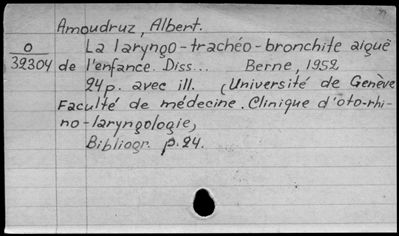 Amoudruz, Albert.
O
39304
La laryngo-trachéo-bronchite aiguë
de l'enfance. Diss... Berne, 1952
24 p. avec ill. (Université de Genève
Faculté de médecine. Clinique d'oto-rhi-
no-laryngologie)
Bibliogr. p. 24.